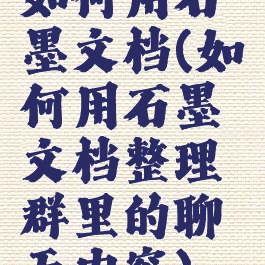 如何用石
墨文档(如
何用石墨
文档整理
群里的聊
天内容)